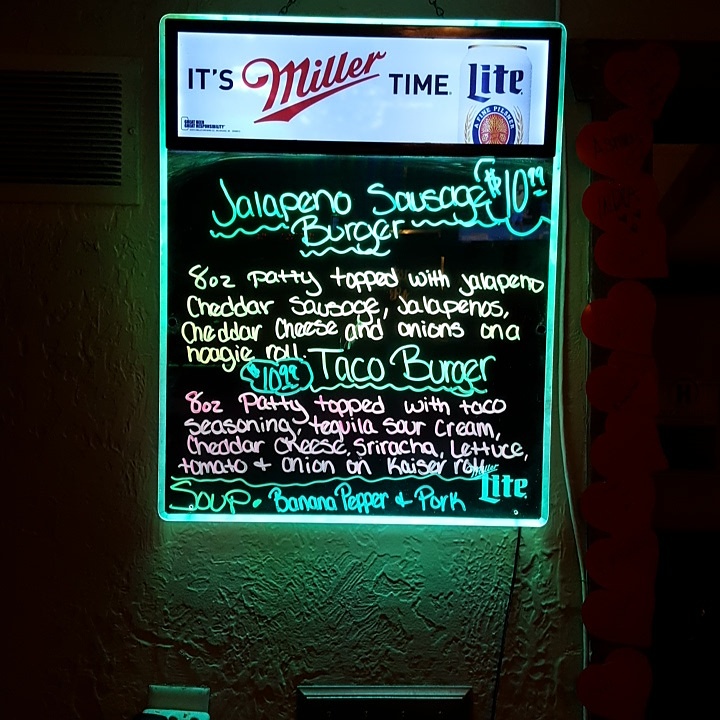 IT'S Miller TIME. Lite
A FINE PILSNER
GREAT BEER
GREAT RESPONSIBILITY
Jalapeno Sausage $10.99
Burger
8oz patty topped with jalapeno
Cheddar Sausage, Jalapenos,
Cheddar Cheese and onions on a
hoagie roll.
$10.99 Taco Burger
8oz Patty topped with taco
seasoning, tequila sour cream,
Cheddar Cheese, Sriracha, Lettuce,
tomato + onion on Kaiser roll
Miller Lite
Soup. Banana Pepper & Pork